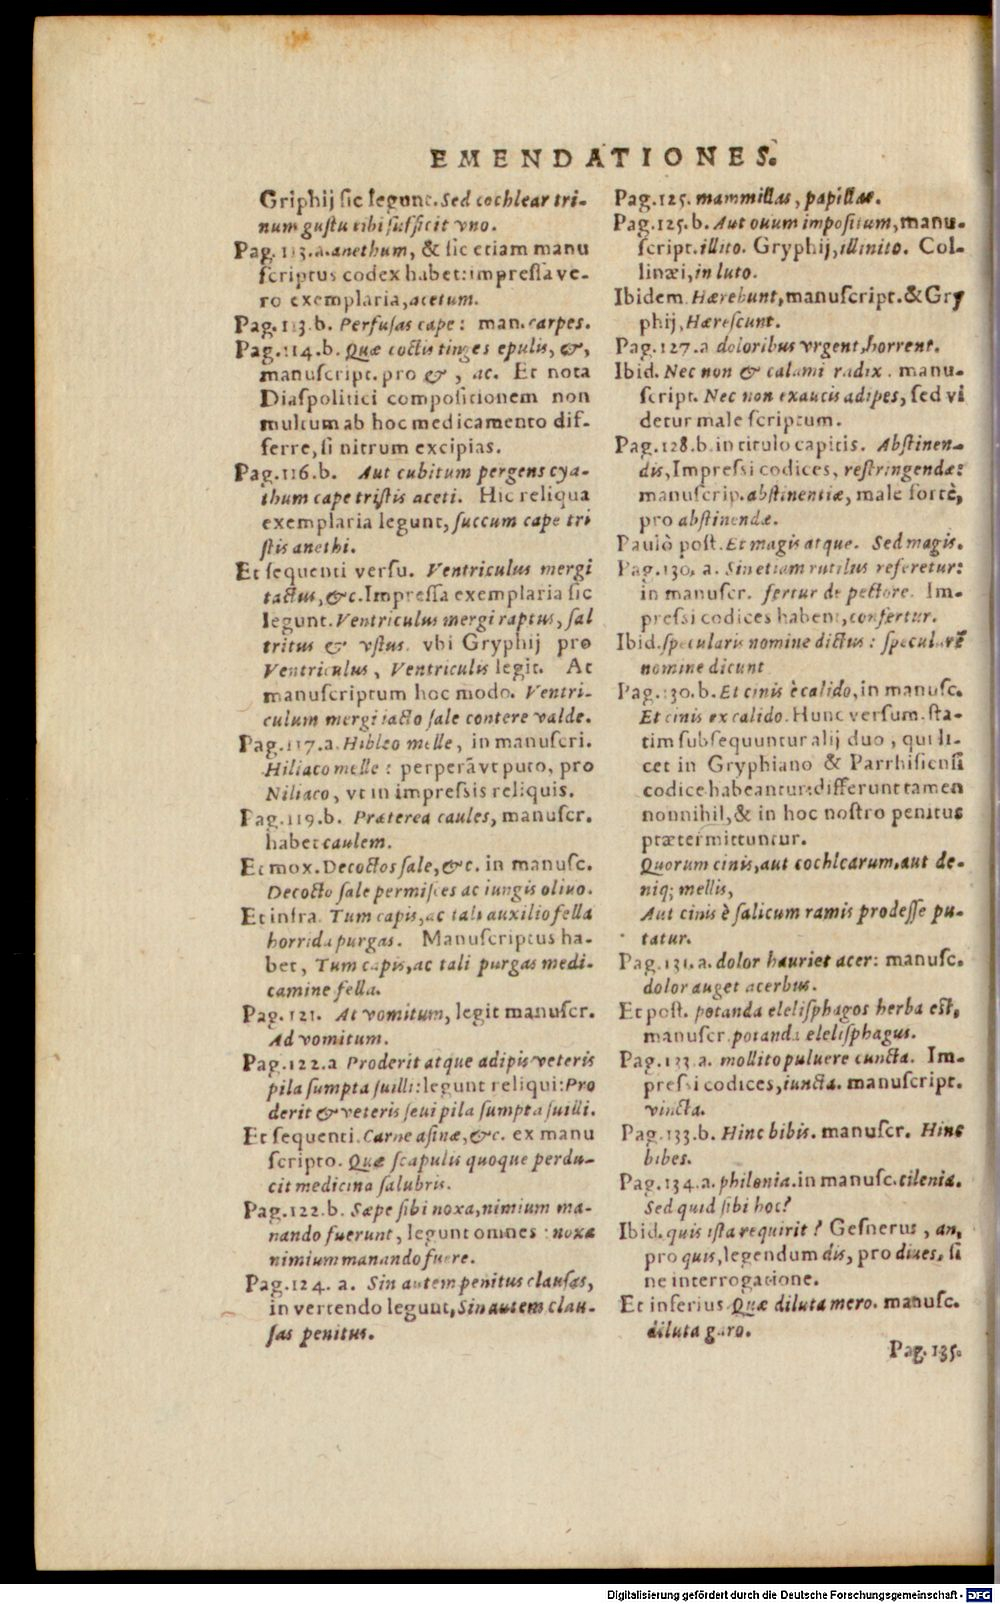 EMENDATIONES.
Griphij sic legunt. Sed cochlear tri-
num gustu tibi sufficit vno.
Pag. 113.a. anethum, & sic etiam manu
scriptus codex habet: impressa ve-
ro exemplaria, acetum.
Pag. 113.b. Perfusas cape: man. carpes.
Pag. 114.b. Quæ coctis tinges epulis, &,
manuscript. pro &, ac. Et nota
Diaspolitici compositionem non
multum ab hoc medicamento dif-
ferre, si nitrum excipias.
Pag. 116.b. Aut cubitum pergens cya-
thum cape tristis aceti. Hic reliqua
exemplaria legunt, succum cape tri
stis anethi.
Et sequenti versu. Ventriculus mergi
tactus, &c. Impressa exemplaria sic
legunt. Ventriculus mergi raptus, sal
tritus & vstus. vbi Gryphij pro
Ventriculus, Ventriculis legit. At
manuscriptum hoc modo. Ventri-
culum mergi iacto sale contere valde.
Pag. 117.a. Hibleo melle, in manuscri.
Hiliaco melle: perperā vt puto, pro
Niliaco, vt in impressis reliquis.
Pag. 119.b. Præterea caules, manuscr.
habet caulem.
Et mox. Decoctos sale, &c. in manusc.
Decocto sale permisces ac iungis oliuo.
Et infra. Tum capis, ac tali auxilio fella
horrida purgas. Manuscriptus ha-
bet, Tum capis, ac tali purgas medi-
camine fella.
Pag. 121. At vomitum, legit manuscr.
Ad vomitum.
Pag. 122.a Proderit atque adipis veteris
pila sumpta suilli: legunt reliqui: Pro
derit & veteris seui pila sumpta suilli.
Et sequenti. Carne asinæ, &c. ex manu
scripto. Quæ scapulis quoque perdu-
cit medicina salubris.
Pag. 122.b. Sæpe sibi noxa, nimium ma-
nando fuerunt, legunt omnes: noxæ
nimium manando fuere.
Pag. 124. a. Sin autem penitus clausas,
in vertendo legunt, Sin autem clau-
sas penitus.
Pag. 125. mammillas, papillae.
Pag. 125.b. Aut ouum impositum, manu-
script. illito. Gryphij, illinito. Col-
linæi, in luto.
Ibidem. Hærebunt, manuscript. & Gry
phij, Hærescunt.
Pag. 127.a doloribus vrgent, horrent.
Ibid. Nec non & calami radix. manu-
script. Nec non exaucis adipes, sed vi
detur male scriptum.
Pag. 128.b. in titulo capitis. Abstinen-
dis, Impressi codices, restringendæ:
manuscrip. abstinentiæ, male fortè,
pro abstinendæ.
Paulò post. Et magis atque. Sed magis.
Pag. 130. a. Sin etiam rutilus referetur:
in manuscr. fertur de pectore. Im-
pressi codices habent, confertur.
Ibid. specularis nomine dictus: specularē
nomine dicunt
Pag. 130.b. Et cinis è calido, in manusc.
Et cinis ex calido. Hunc versum sta-
tim subsequuntur alij duo, qui li-
cet in Gryphiano & Parrhisiensi
codice habeantur: differunt tamen
nonnihil, & in hoc nostro penitus
prætermittuntur.
Quorum cinis, aut cochlearum, aut de-
niq; mellis,
Aut cinis è salicum ramis prodesse pu-
tatur.
Pag. 131.a. dolor hauriet acer: manusc.
dolor auget acerbus.
Et post. potanda elelisphagos herba est,
manuscr. potanda elelisphagus.
Pag. 133.a. mollito puluere cuncta. Im-
pressi codices, iuncta. manuscript.
vincta.
Pag. 133.b. Hinc bibis. manuscr. Hinc
bibes.
Pag. 134.a. philonia. in manusc. cilenia.
Sed quid sibi hoc?
Ibid. quis ista requirit? Gesnerus, an,
pro quis, legendum dis, pro diues, si
ne interrogatione.
Et inferius. Quæ diluta mero. manusc.
diluta garo.
Pag. 135.
Digitalisierung gefördert durch die Deutsche Forschungsgemeinschaft - DFG